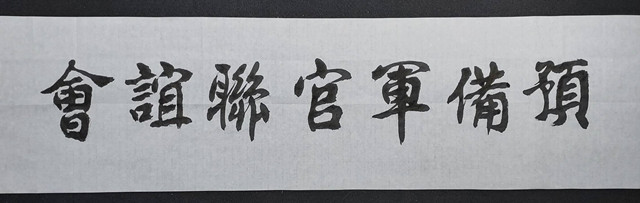 預備軍官聯誼會